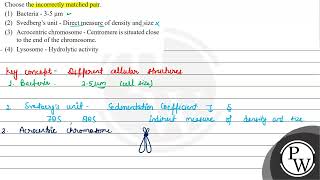 Choose the incorrectly matched pair.
(1) Bacteria - 3-5 μm
(2) Svedberg's unit - Direct measure of density and size ×
(3) Acrocentric chromosome - Centromere is situated close
to the end of the chromosome.
(4) Lysosome - Hydrolytic activity
Key concept - Different cellular structures
1. Bacteria 2-5 μm (cell size)
2. Svedberg's unit - Sedimentation Coefficient
70S, 80S Indirect measure of density and size
3. Acrocentric chromosome
PW